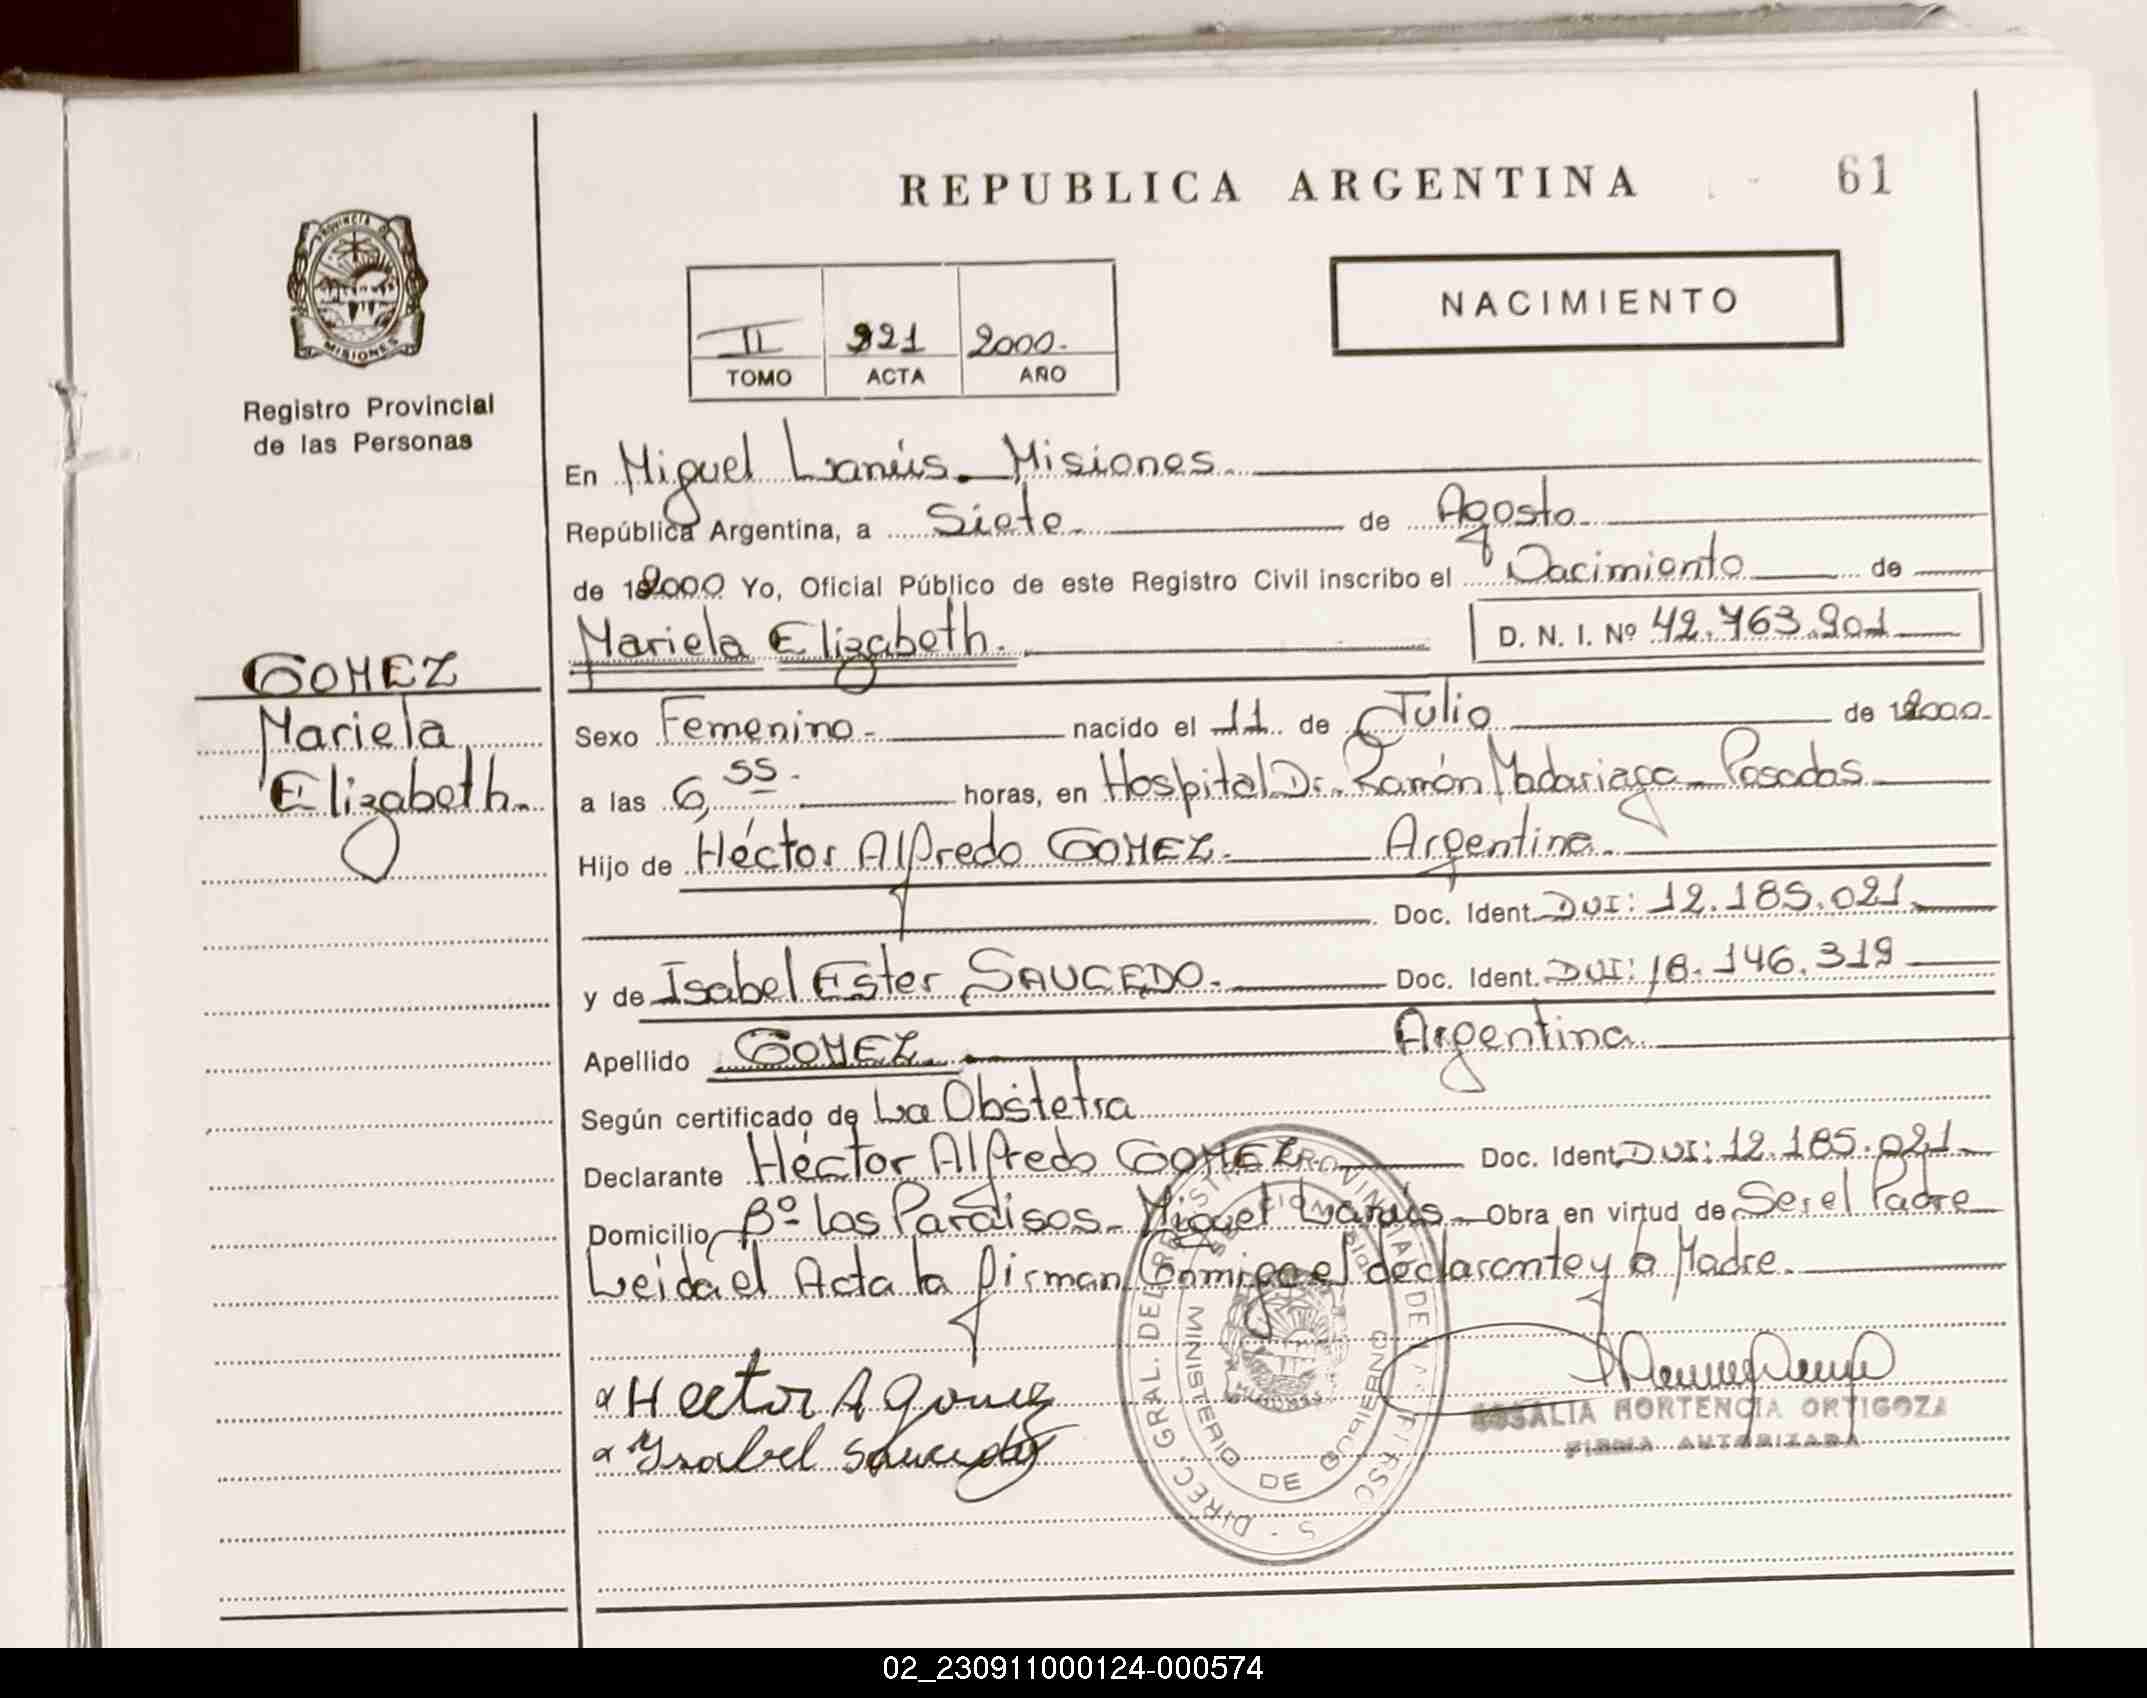 REPUBLICA ARGENTINA 61
PROVINCIA DE
MISIONES
Registro Provincial
de las Personas
NACIMIENTO
II 221 2000.
TOMO ACTA AÑO
En Miguel Lanús. Misiones
República Argentina, a Siete de Agosto
de 2000 Yo, Oficial Público de este Registro Civil inscribo el Nacimiento de
Mariela Elizabeth. D. N. I. Nº 42.763.901
GOMEZ
Mariela
Elizabeth.
Sexo Femenino nacido el 11 de Julio de 2000.
a las 6,55 horas, en Hospital Dr. Ramón Madariaga Posadas
Hijo de Héctor Alfredo GOMEZ. Argentina.
Doc. Ident. DNI: 12.185.021
y de Isabel Ester SAUCEDO. Doc. Ident. DNI: 18.146.319
Apellido GOMEZ. Argentina
Según certificado de La Obstetra
Declarante Héctor Alfredo GOMEZ Doc. Ident. DNI: 12.185.021
Domicilio Bº los Paraisos. Miguel Lanús Obra en virtud de Ser el Padre
Leida el Acta la firman Conmigo el declarante y la Madre.
Hector A Gomez
Ysabel Saucedo
ROSALIA HORTENCIA ORTIGOZA
FIRMA AUTORIZADA
MINISTERIO DE GOBIERNO
02_230911000124-000574